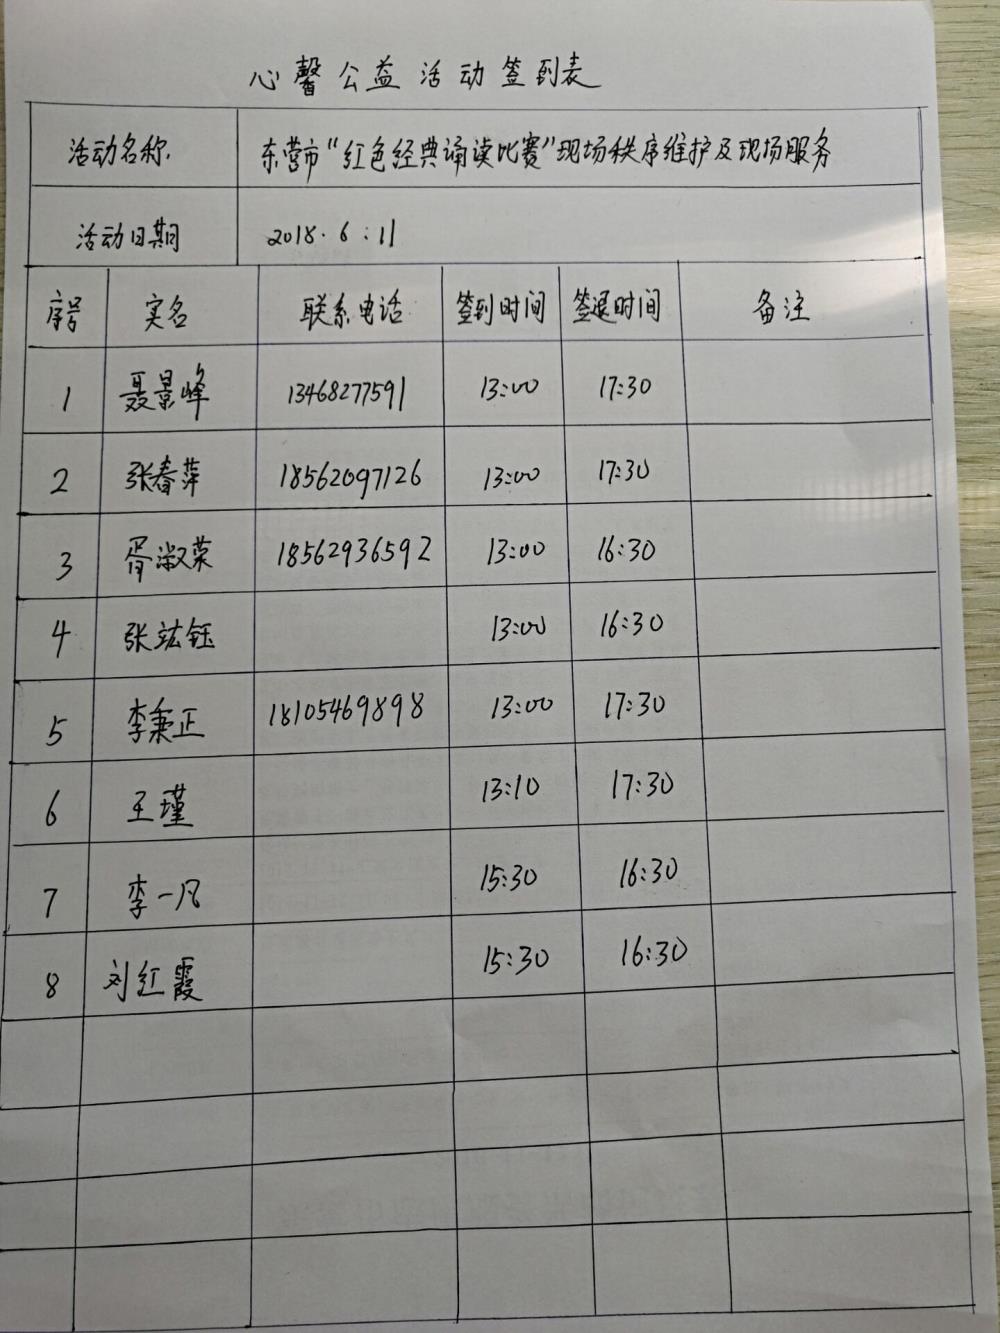 心馨公益活动签到表
活动名称. 东营市“红色经典诵读比赛”现场秩序维护及现场服务
活动日期 2018.6:11
序号 实名 联系电话 签到时间 签退时间 备注
1 聂景峰 13468277591 13:00 17:30
2 张春萍 18562097126 13:00 17:30
3 胥淑荣 18562936592 13:00 16:30
4 张竑钰 13:00 16:30
5 李秉正 18105469898 13:00 17:30
6 王瑾 13:10 17:30
7 李一凡 15:30 16:30
8 刘红霞 15:30 16:30